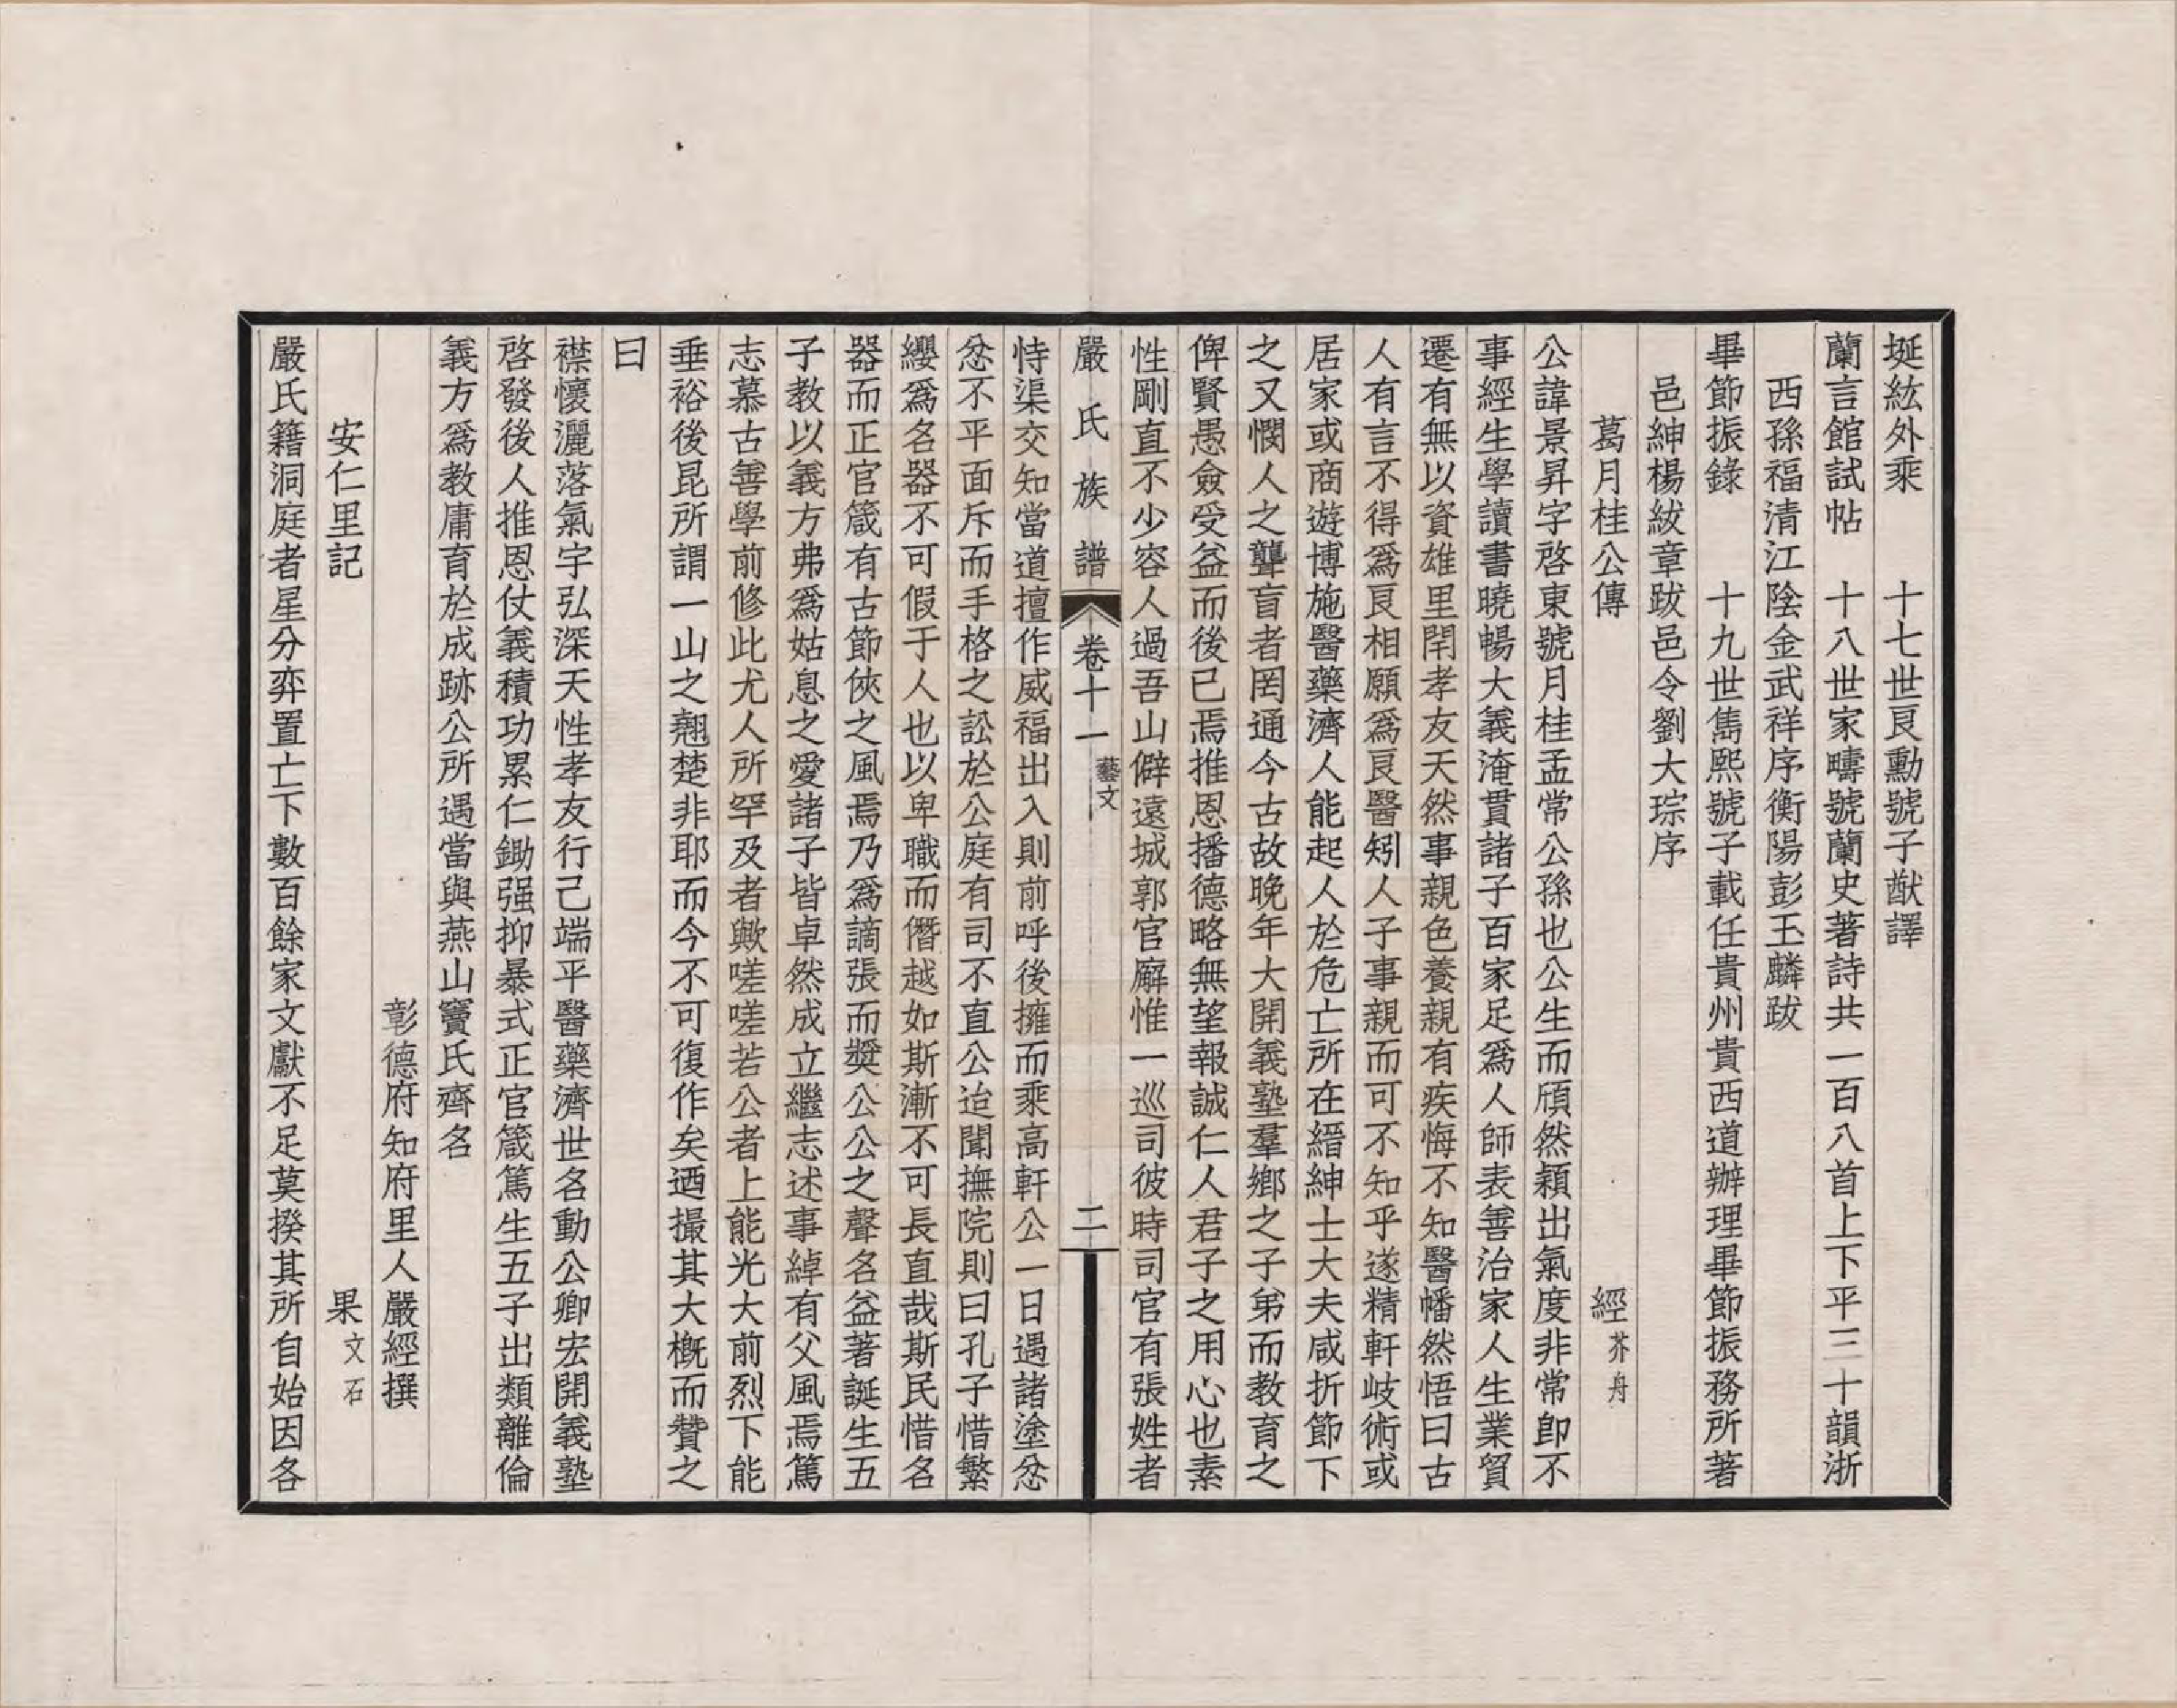 埏紘外乘　十七世良勳號子猷譯
蘭言館試帖　十八世家疇號蘭史著詩共一百八首上下平三十韻浙
西孫福清江陰金武祥序衡陽彭玉麟跋
畢節振錄　十九世雋熙號子載任貴州貴西道辦理畢節振務所著
邑紳楊紱章跋邑令劉大琮序
葛月桂公傳　經芥舟
公諱景昇字啓東號月桂孟常公孫也公生而頎然穎出氣度非常卽不
事經生學讀書曉暢大義淹貫諸子百家足爲人師表善治家人生業貿
遷有無以資雄里閈孝友天然事親色養親有疾悔不知醫幡然悟曰古
人有言不得爲良相願爲良醫矧人子事親而可不知乎遂精軒岐術或
居家或商遊博施醫藥濟人能起人於危亡所在縉紳士大夫咸折節下
之又憫人之聾盲者罔通今古故晚年大開義塾羣鄉之子弟而教育之
俾賢愚僉受益而後已焉推恩播德略無望報誠仁人君子之用心也素
性剛直不少容人過吾山僻遠城郭官廨惟一巡司彼時司官有張姓者
嚴氏族譜　卷十一　藝文　二
恃渠交知當道擅作威福出入則前呼後擁而乘高軒公一日遇諸塗忿
忿不平面斥而手格之訟於公庭有司不直公迨聞撫院則曰孔子惜繁
纓爲名器不可假于人也以卑職而僭越如斯漸不可長直哉斯民惜名
器而正官箴有古節俠之風焉乃爲謫張而獎公公之聲名益著誕生五
子教以義方弗爲姑息之愛諸子皆卓然成立繼志述事綽有父風焉篤
志慕古善學前修此尤人所罕及者歟嗟嗟若公者上能光大前烈下能
垂裕後昆所謂一山之翹楚非耶而今不可復作矣迺撮其大槪而贊之
曰
襟懷灑落氣宇弘深天性孝友行己端平醫藥濟世名動公卿宏開義塾
啓發後人推恩仗義積功累仁鋤强抑暴式正官箴篤生五子出類離倫
義方爲教庸育於成跡公所遇當與燕山竇氏齊名
彰德府知府里人嚴經撰
安仁里記　果文石
嚴氏籍洞庭者星分弈置亡下數百餘家文獻不足莫揆其所自始因各